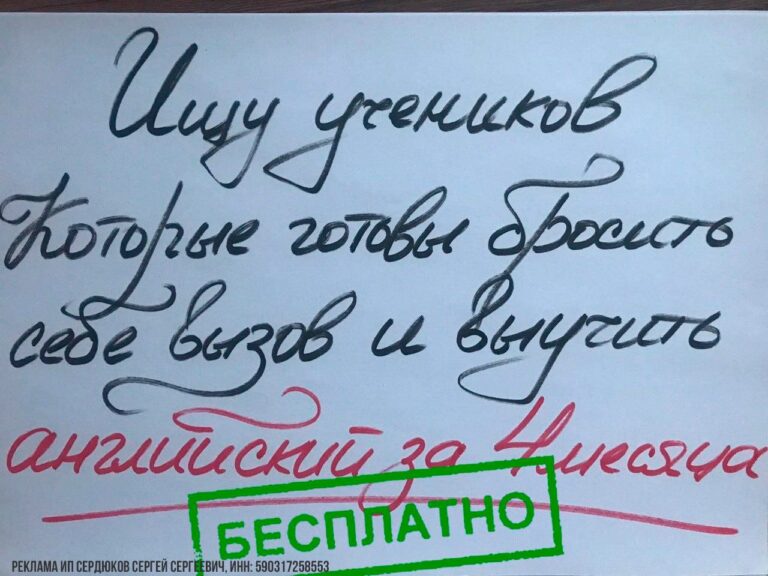 Ищу учеников
Которые готовы бросить
себе вызов и выучить
английский за 4 месяца
БЕСПЛАТНО
РЕКЛАМА ИП СЕРДЮКОВ СЕРГЕЙ СЕРГЕЕВИЧ, ИНН: 590317258553